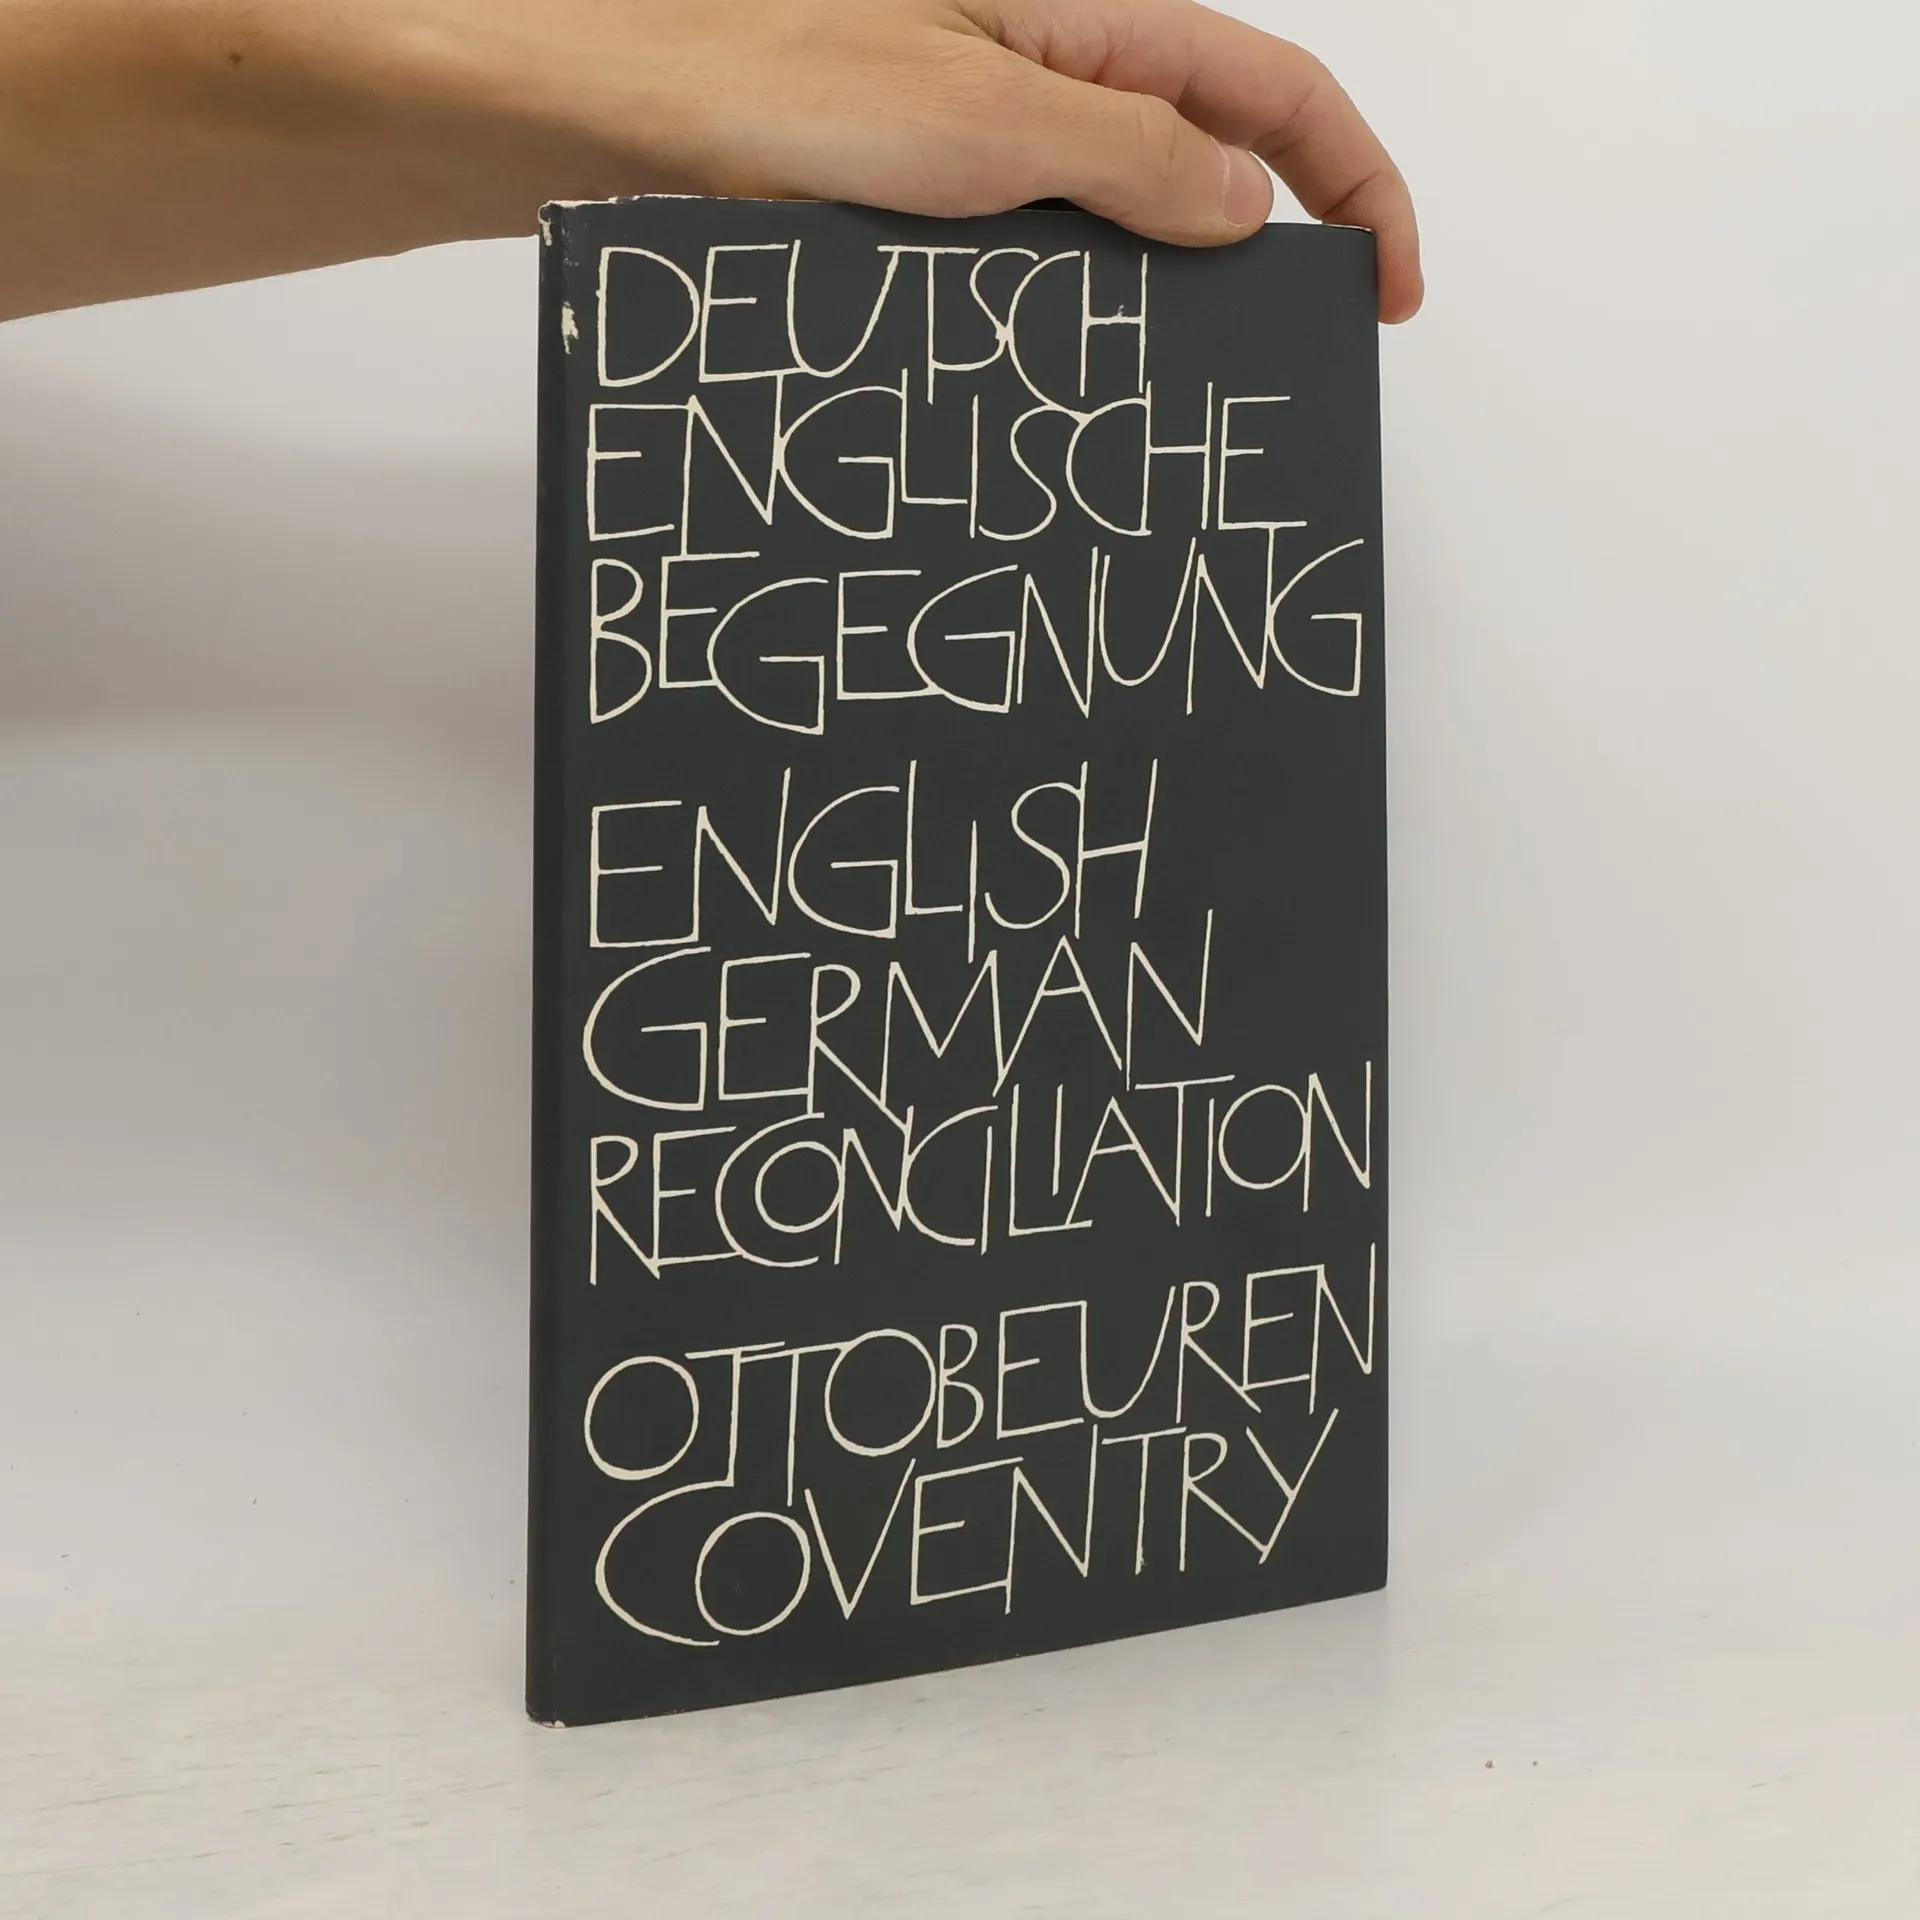 DEUTSCH
ENGLISCHE
BEGEGNUNG
ENGLISH
GERMAN
RECONCILIATION
OTTOBEUREN
COVENTRY